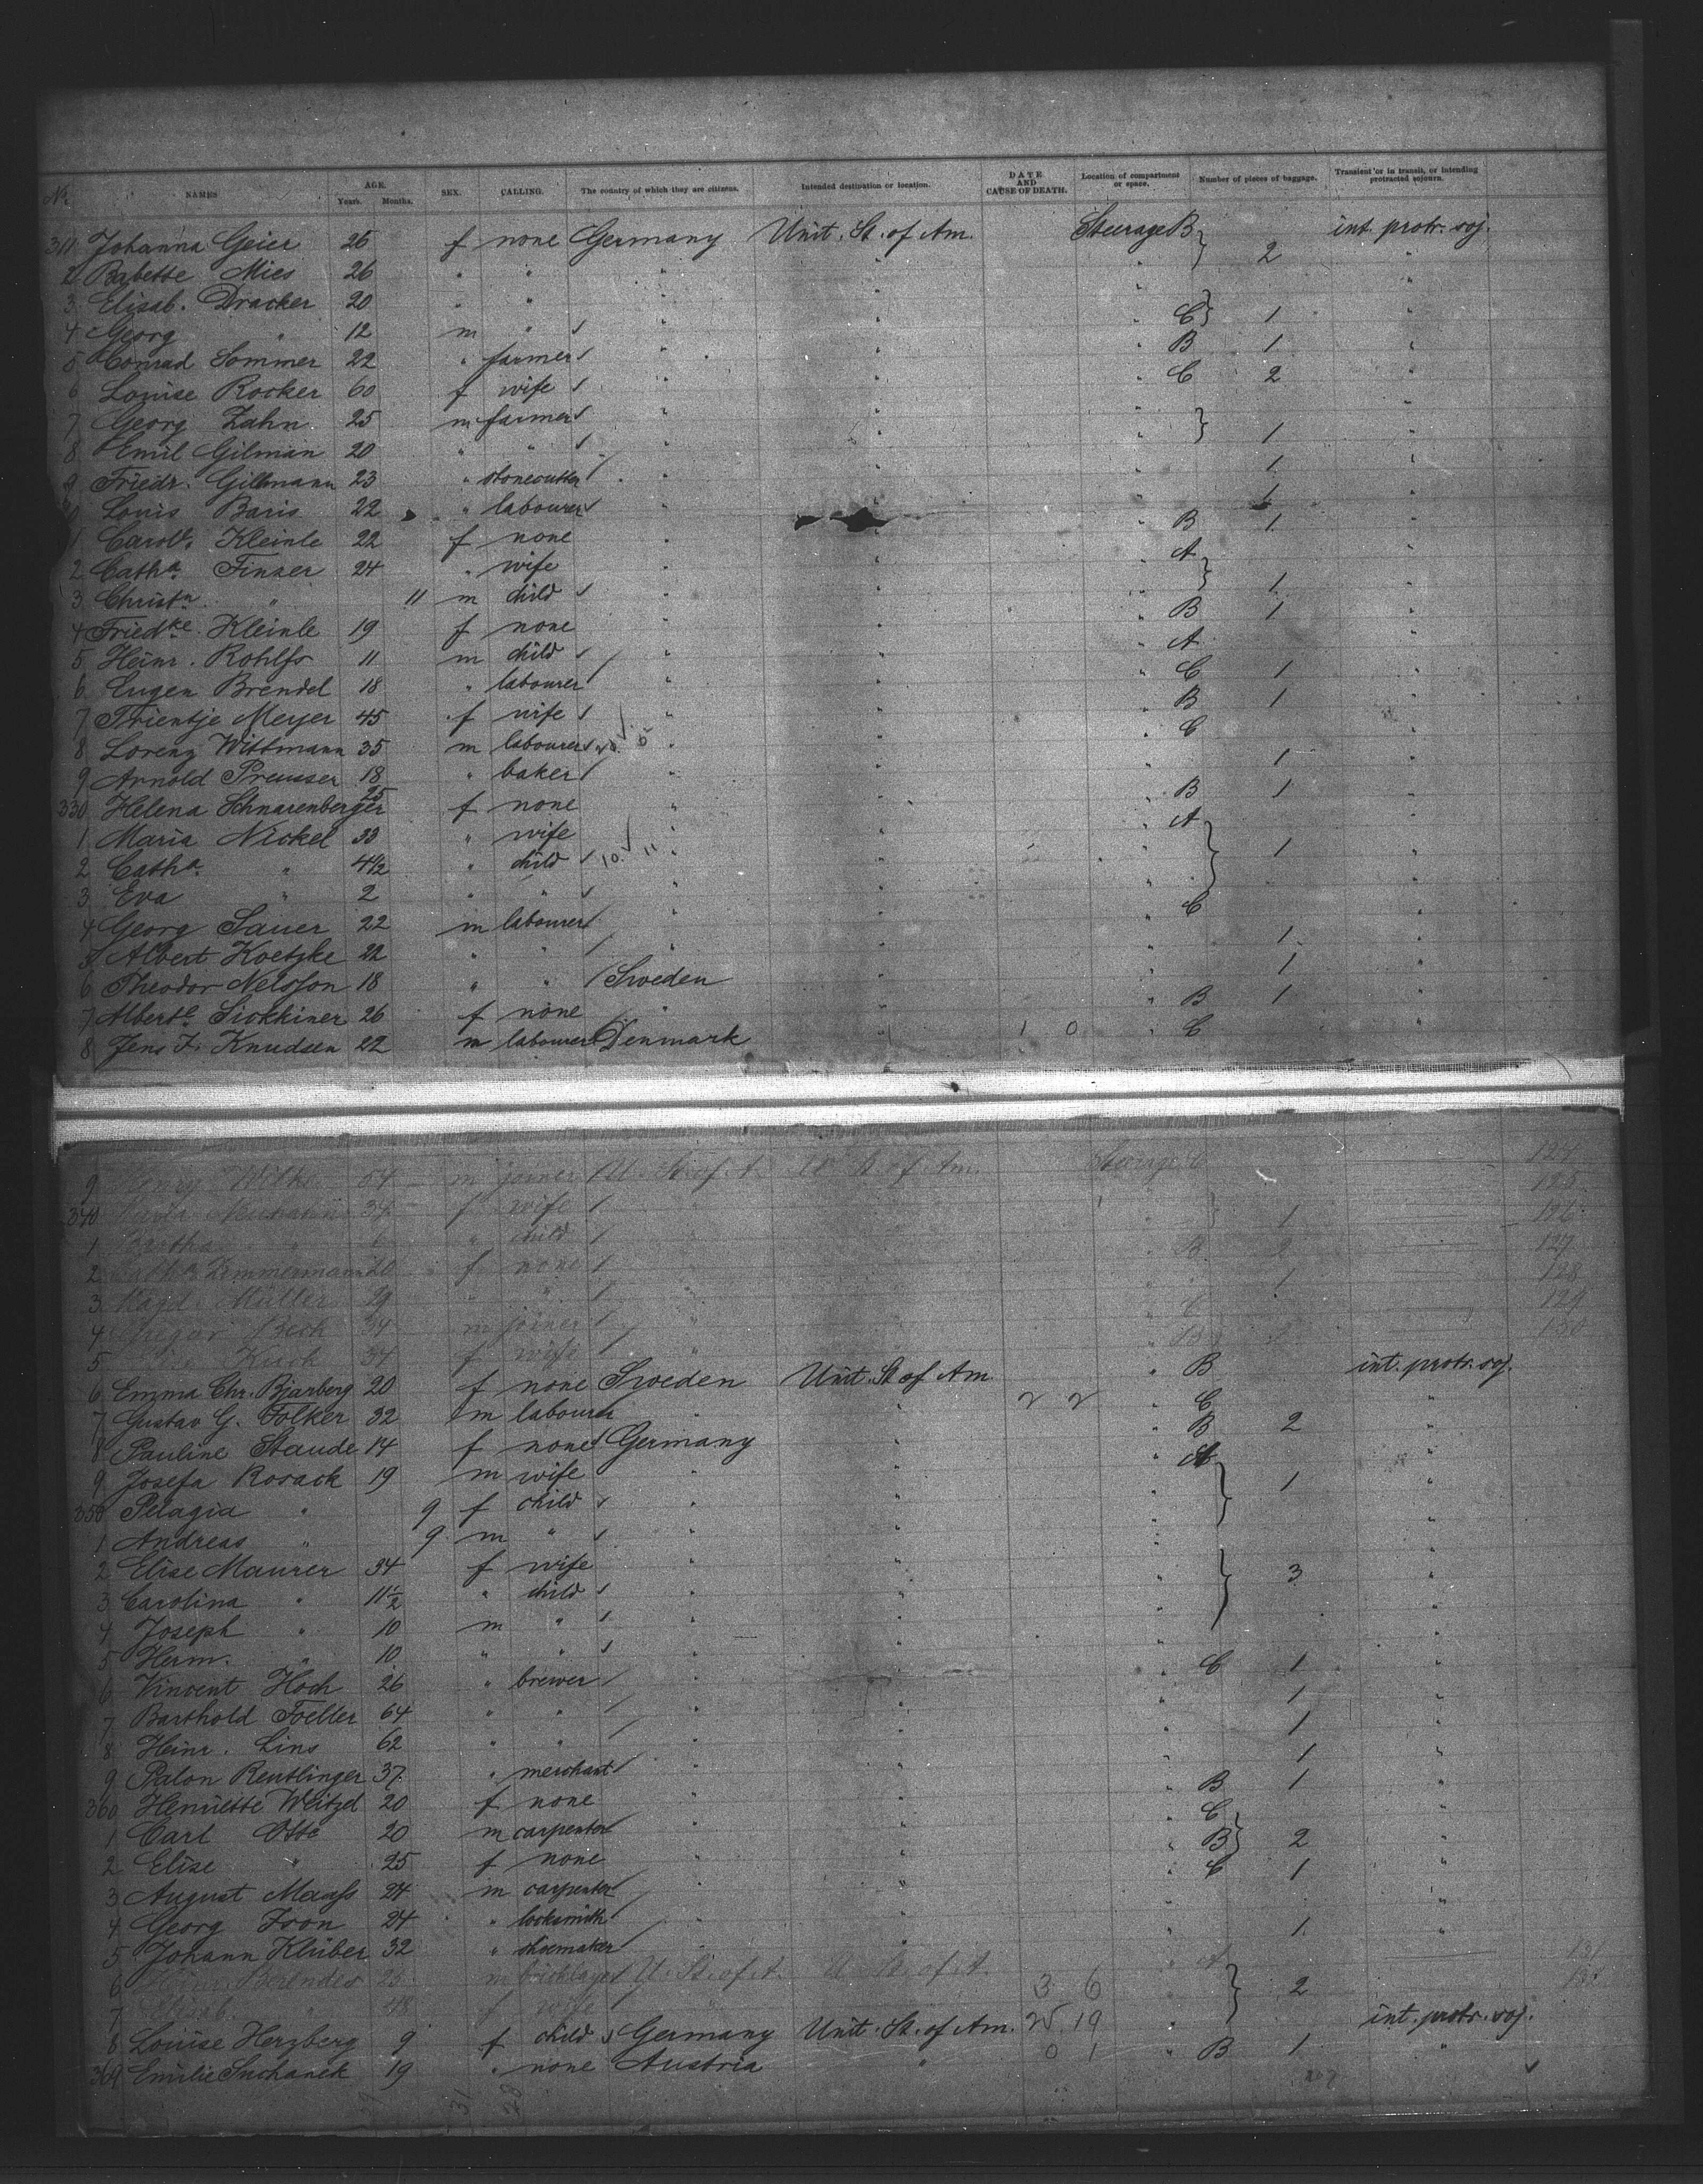 No. NAMES AGE. Years. Months. SEX. CALLING. The country of which they are citizens. Intended destination or location. DATE AND CAUSE OF DEATH. Location of compartment or space. Number of pieces of baggage. Transient or in transit, or intending protracted sojourn.
311 Johanna Geier 25 f none Germany Unit. St. of Am. Steerage B } 2 int. protr. soj.
2 Babette Mies 26 " " " " " "
3 Elisab. Dracker 20 " " " " "
4 Georg " 12 m " " " " C } 1 "
5 Conrad Sommer 22 " farmer " " " B 1 "
6 Louise Rocker 60 f wife " " " C 2 "
7 Georg Zahn 25 m farmer " " "
8 Emil Gilman 20 " " " " " } 1 "
9 Friedr. Gillmann 23 " stonecutter " " " 1 "
20 Louis Baris 22 " labourer " " " 1 "
1 Carol. Kleinle 22 f none " " " B 1 "
2 Catha. Finzer 24 " wife " " " A "
3 Christn. " 11 m child " " " } 1 "
4 Friedke. Kleinle 19 f none " " " B 1 "
5 Heinr. Rohlfs 11 m child " " " A "
6 Eugen Brendel 18 " labourer " " " C 1 "
7 Trientje Meyer 45 f wife " " " B 1 "
8 Lorenz Wittmann 35 m labourer " " " C "
9 Arnold Preusser 18 " baker " " " 1 "
330 Helena Schnarenberger 25 f none " " " B 1 "
1 Maria Nickel 33 " wife " " " A "
2 Catha. " 4½ " child 10 11 " " " } 1 "
3 Eva " 2 " " " " " "
4 Georg Sauer 22 m labourer " " " C "
5 Albert Koetzke 22 " " " " " 1 "
6 Theodor Nelsson 18 " " Sweden " " 1 "
7 Alberte. Siokkiner 26 f none " " " B 1 "
8 Jens J. Knudsen 22 m labourer Denmark " 1 0 " C "
9 Henry Wilke 54 m joiner U. St. of A. U. St. of Am. Steerage C 124
340 34 f wife 125
1 Bertha " 6 " child } 1 126
2 Cathe. Zimmermann 20 f none B 2 127
3 Magd. Müller 29 " " 1 128
4 Gregor Bech 34 m joiner C 129
5 Kuch 34 f wife B 130
6 Emma Chr. Bjarberg 20 f none Sweden Unit. St. of Am. " B int. protr. soj.
7 Gustav G. Folker 32 m labourer " " 2 2 " C "
8 Pauline Staude 14 f none Germany " " B 2 "
9 Josefa Rosack 19 m wife " " " A "
350 Pelagia " 9 f child " " " } 1 "
1 Andreas " 9 m " " " " "
2 Elise Maurer 34 f wife " " " "
3 Carolina " 11½ " child " " " } 3 "
4 Joseph " 10 m " " " " "
5 Herm. " 10 " " " " " "
6 Vincent Hoch 26 " brewer " " " C 1 "
7 Barthold Foeller 64 " " " " " 1 "
8 Heinr. Lins 62 " " " " " 1 "
9 Salon Reutlinger 37 " merchant " " " 1 "
360 Henriette Weitzel 20 f none " " " B 1 "
1 Carl Otte 20 m carpenter " " " C "
2 Elise " 25 f none " " " B } 2 "
3 August Maass 24 m carpenter " " " C 1 "
4 Georg Iron 24 " locksmith " " " "
5 Johann Klüber 32 " shoemaker " " " 1 "
6 Berendes 25 m bricklayer U. St. of A. U. St. of A. A 131
7 Elisab. " 48 f wife 3 6 } 2
8 Louise Herzberg 9 f child Germany Unit. St. of Am. 25 19 " int. protr. soj.
369 Emilie Suchanek 19 " none Austria " 0 1 " B 1 "